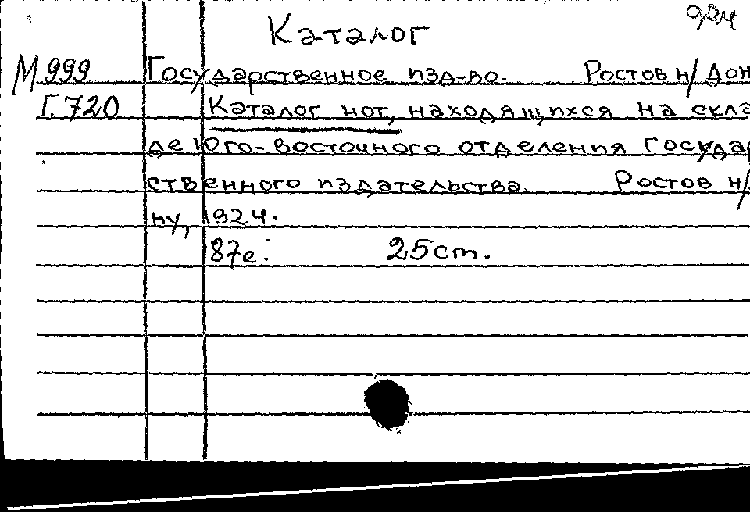 924
Каталог
М 999 Государственное изд-во. Ростов н/Дон
Г. 720 Каталог нот, находящихся на скла
де Юго-восточного отделения Госуда
ственного издательства. Ростов н/
ну, 1924.
87с. 25cm.